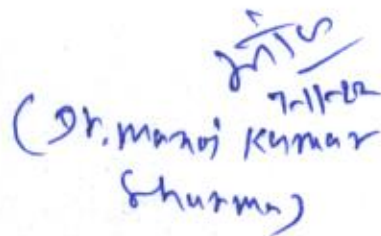 7-11-22
(Dr. Manoj Kumar
Sharma)